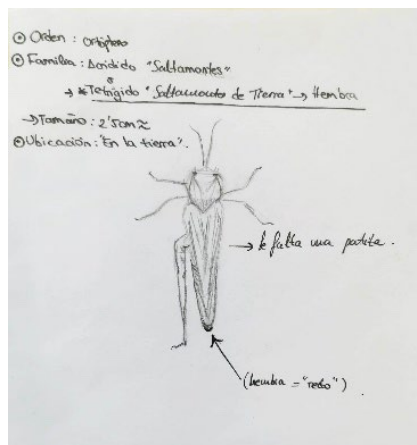 ⊙ Orden : Ortóptero
⊙ Familia : Acrídido "Saltamontes"
o
→ * Tetrígido "Saltamontes de Tierra" → Hembra
→ Tamaño : 2'5cm ≈
⊙ Ubicación : "En la tierra".
→ le falta una patita.
(hembra = "recto")